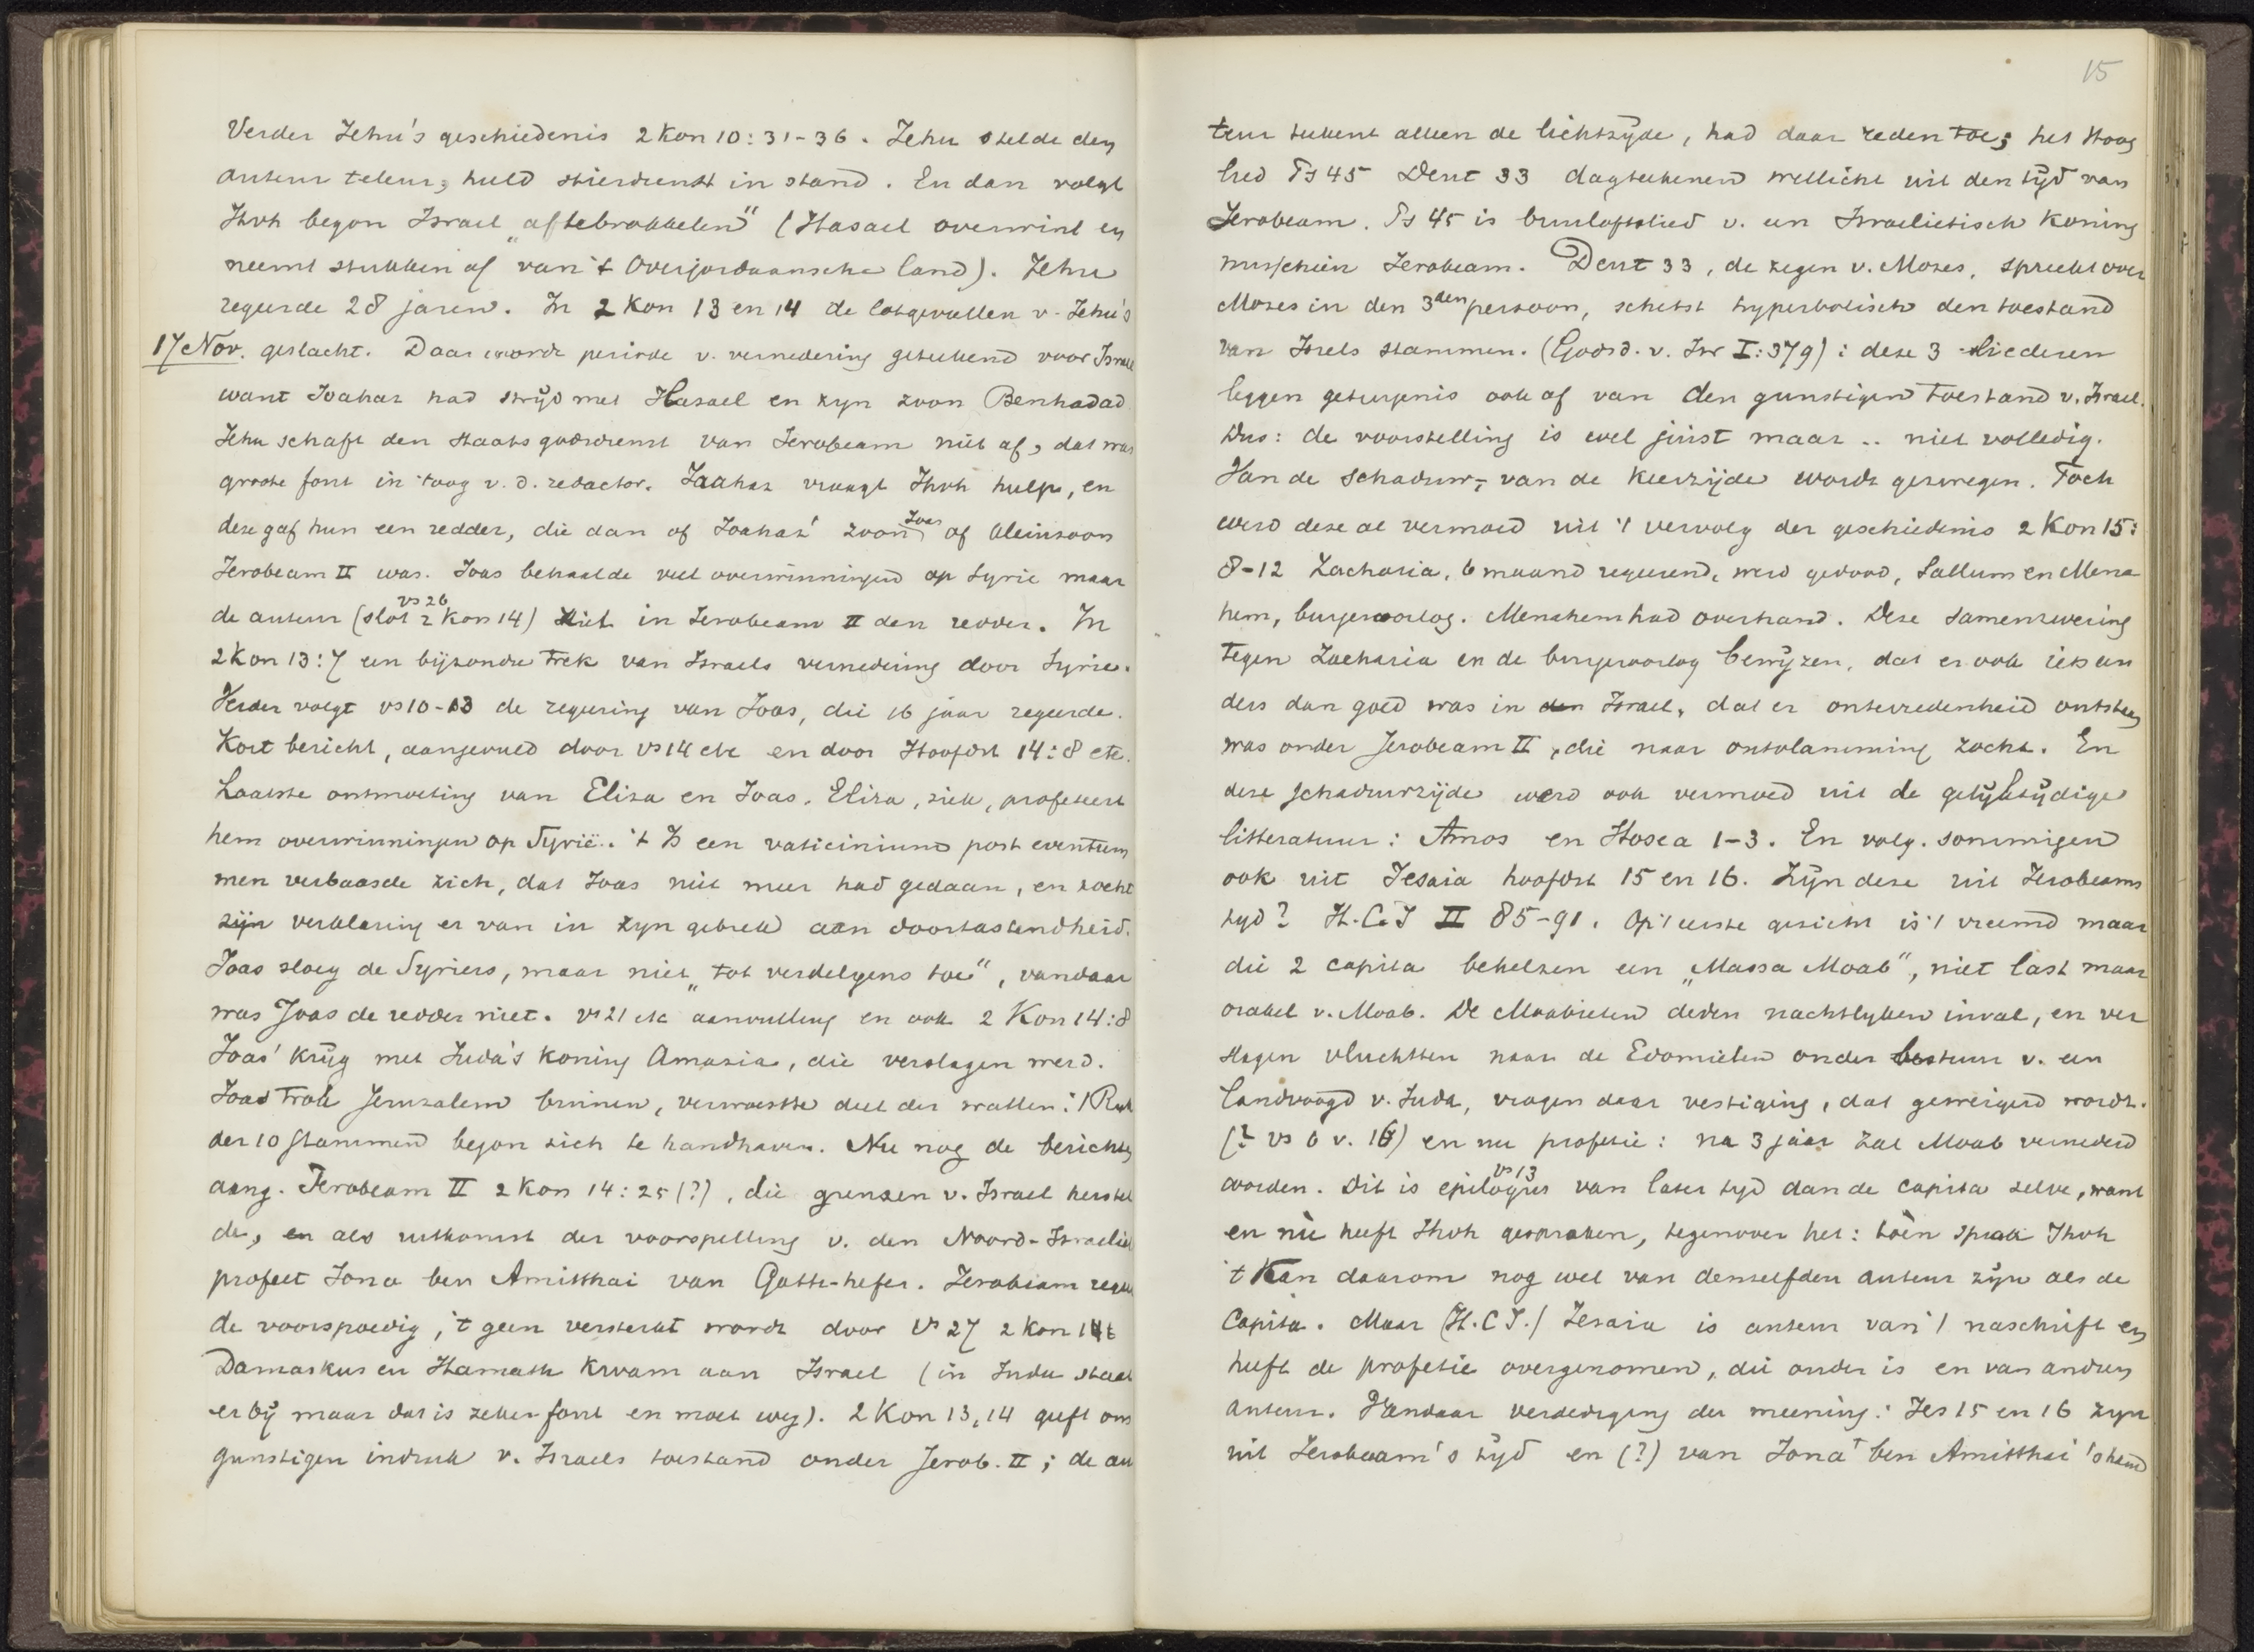 Verder Jehu's geschiedenis 2 Kon 10:31-36. Jehu stelde den
auteur teleur; hield stierdienst in stand. En dan volgt
Jhvh begon Israel „af te brokkelen" (Hasael overwint en
neemt stukken af van 't Overjordaansche land). Jehu
regeerde 28 jaren. In 2 Kon 13 en 14 de lotgevallen v. Jehu's
17 Nov. geslacht. Daar wordt periode v. vernedering geteekend voor Israel
want Joahas had strijd met Hasael en zyn zoon Benhadad
Jehu schaft den staatsgodsdienst van Jerobeam niet af, dat was
groote fout in 't oog v. d. redactor. Joahaz vraagt Jhvh hulp, en
deze gaf hun een redder, die dan of Joahaz' zoon Joas of kleinzoon
Jerobeam II was. Joas behaalde veel overwinningen op Syrie maar
de auteur (slot 2 Kon 14 vs 26) ziet in Jerobeam II den redder. In
2 Kon 13:7 een bijzondre trek van Israels vernedering door Syrie.
Verder volgt vs 10-13 de regering van Joas, die 16 jaar regeerde.
Kort bericht, aangevuld door vs 14 etc en door Hoofdst 14:8 etc.
Laatste ontmoeting van Elisa en Joas. Elisa, ziek, profeteert
hem overwinningen op Syrië. 't Is een vaticinium post eventum
men verbaasde zich, dat Joas niet meer had gedaan, en zocht
zijn verklaring er van in zyn gebrek aan doortastendheid.
Joas sloeg de Syriers, maar niet „tot verdelgens toe", vandaar
was Joas de redder niet. vs 21 etc aanvulling en ook 2 Kon 14:8
Joas' krijg met Juda's koning Amazia, die verslagen werd.
Joas trok Jeruzalem binnen, verwoestte deel der wallen: 't Ryk
der 10 stammen begon zich te handhaven. Nu nog de berichten
aang. Jerobeam II 2 Kon 14:25 (?), die grenzen v. Israel herstel
de, en als uitkomst der voorspelling v. den Noord-Israeliet
profeet Jona ben Amitthai van Gath-hefer. Jerobeam regeer
de voorspoedig, 't geen versterkt wordt door vs 27 2 Kon 14:
Damaskus en Hamath kwam aan Israel (in Juda staat
er bij maar dat is zeker fout en moet weg). 2 Kon 13,14 geeft ons
gunstigen indruk v. Israels toestand onder Jerob. II; de au
15
teur teekent alleen de lichtzyde, had daar reden toe; het Hoog
lied Ps 45 Deut 33 dagteekenen wellicht uit den tijd van
Jerobeam. Ps 45 is bruiloftslied v. een Israelietisch koning
misschien Jerobeam. Deut 33, de zegen v. Mozes, spreekt over
Mozes in den 3den persoon, schetst hyperbolisch den toestand
van Isrels stammen. (Godsd. v. Isr I:379): deze 3 liederen
leggen getuigenis ook af van den gunstigen toestand v. Israel.
Dus: de voorstelling is wel juist maar .. niet volledig.
Van de schaduw-, van de keerzijde wordt gezwegen. Toch
werd deze al vermoed uit 't vervolg der geschiedenis 2 Kon 15:
8-12 Zacharia, 6 maand regeerend, werd gedood, Sallum en Mena
hem, burgeroorlog. Menahem had overhand. Deze samenzwering
tegen Zacharia en de burgeroorlog bewijzen, dat er ook iets an
ders dan goed was in Israel, dat er ontevredenheid ontstaan
was onder Jerobeam II, die naar ontvlamming zocht. En
deze schaduwzijde werd ook vermoed uit de gelijktijdige
litteratuur: Amos en Hosea 1-3. En volg. sommigen
ook uit Jesaia hoofdst 15 en 16. Zijn deze uit Jerobeams
tyd? H.C.J II 85-91. Op 't eerste gezicht is 't vreemd maar
die 2 capita behelzen een „Massa Moab", niet last maar
orakel v. Moab. De Moabieten deden nachtlyken inval, en ver
slagen vluchtten naar de Edomieten onder bestuur v. een
landvoogd v. Juda, vragen daar vestiging, dat geweigerd wordt.
(? vs 6 v. 16) en nu profetie: na 3 jaar zal Moab vernederd
worden. Dit is epiloog vs 13 van later tyd dan de capita zelve, want
en nù heeft Jhvh gesproken, tegenover het: toèn sprak Jhvh
't Kan daarom nog wel van denzelfden auteur zijn als de
Capita. Maar (H.C.J.) Jesaia is auteur van 't naschrift en
heeft de profetie overgenomen, die ouder is en van andren
auteur. Vandaar verdediging der meening: Jes 15 en 16 zyn
uit Jerobeam's tijd en (?) van Jona ben Amitthai 's hand